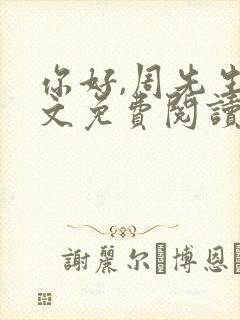 你好,周先生
文免費閱讀
謝麗尔 博恩